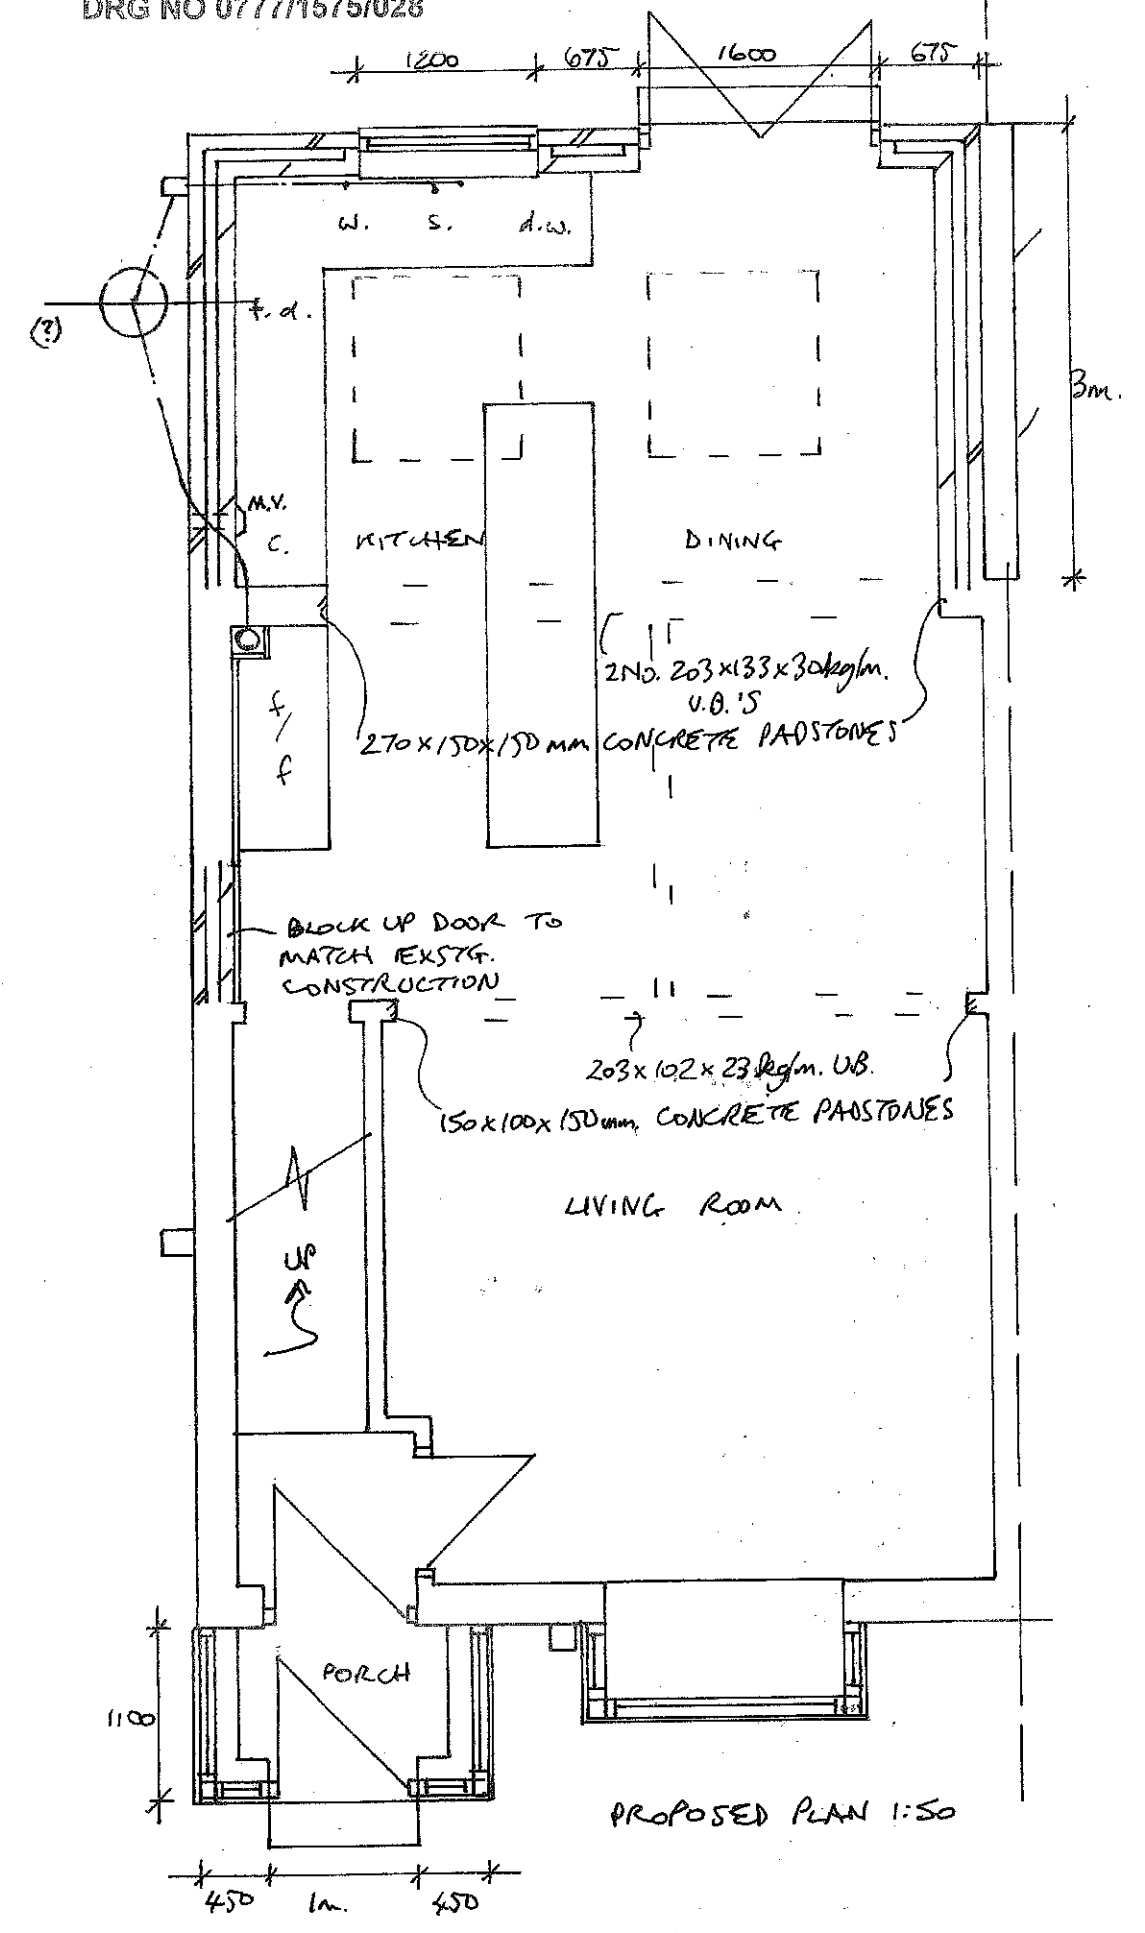 DRG NO 0777/1575/028
1200
675
1600
675
w.
s.
d.w.
(?)
t.d.
3m.
M.V.
C.
KITCHEN
DINING
2NO. 203x133x30kg/m.
U.B.'S
270x150x150mm CONCRETE PADSTONES
f/f
BLOCK UP DOOR TO
MATCH EXSTG.
CONSTRUCTION
203x102x23kg/m. U.B.
150x100x150mm. CONCRETE PADSTONES
LIVING ROOM
UP
PORCH
PROPOSED PLAN 1:50
450
1m.
450